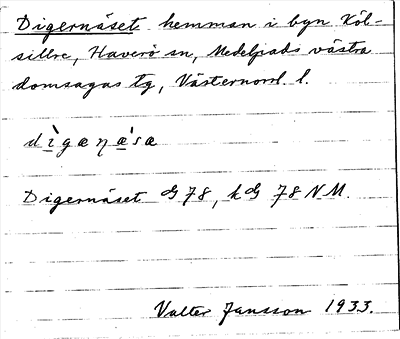 Digernäset hemman i byn Köl-
sillre, Haverö sn, Medelpads västra
domsagas tg, Västernorrl. l.
dìgæṇa̱ʹsæ
Digernäset G 78, hG 78 NM.
Valter Jansson 1933.